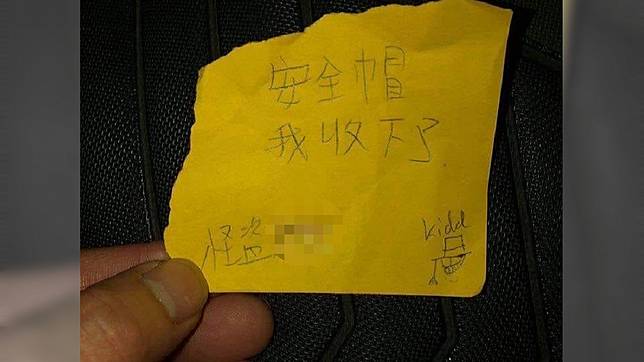 安全帽
我收下了
怪盜
kidd